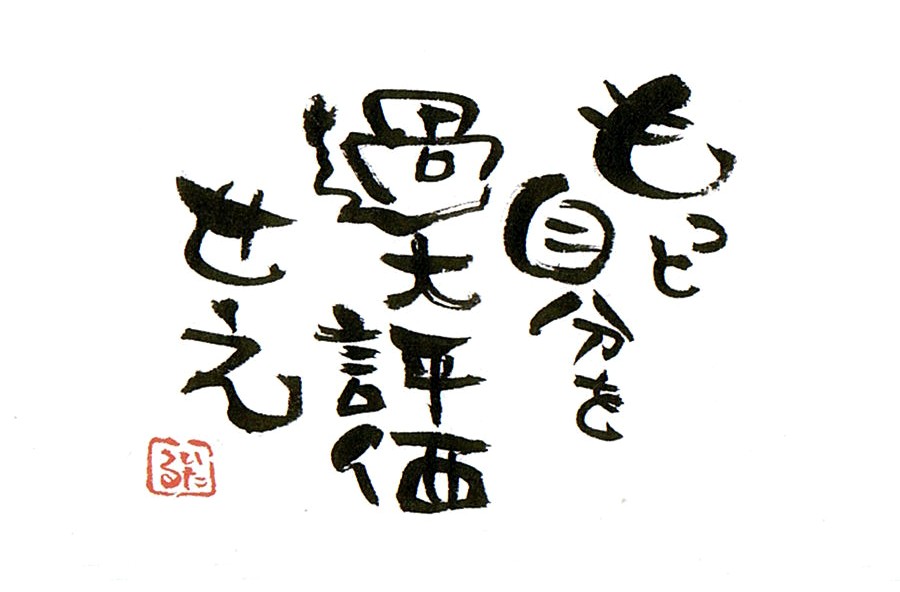 もっと
自分を
過大評価
せえ
いたる